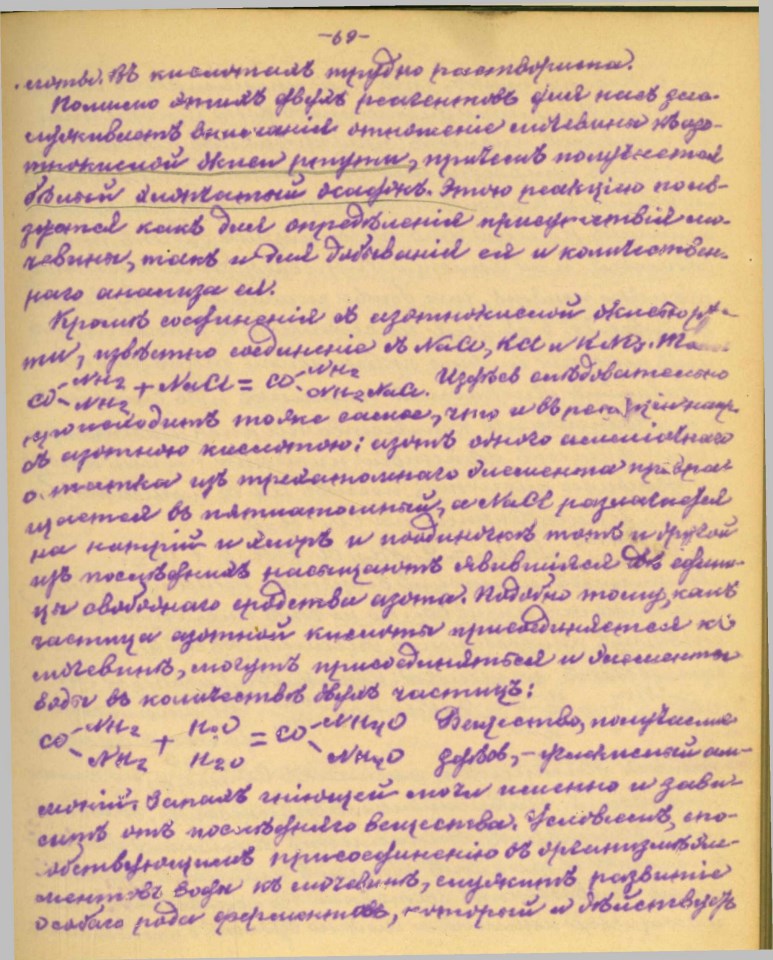 -69-
слоты. Въ кислотахъ трудно растворима.
Помимо этихъ двухъ реагентовъ для насъ за-
служиваетъ вниманія отношеніе мочевины къ азо-
тнокислой окиси ртути, причемъ получается
бѣлый хлопчатый осадокъ. Этою реакціею поль-
зуются какъ для опредѣленія присутствія мо-
чевины, такъ и для добыванія ея и количествен-
наго анализа ея.
Кромѣ соединенія съ азотнокислой окисью рту-
ти, извѣстно соединеніе съ NaCl, KCl и
CO NH2 NH2 + NaCl = CO NH2 NH2NaCl. Издѣсь слѣдовательно
происходитъ тоже самое, что и въ реакціи
съ азотною кислотою: азотъ одного амміачнаго
остатка изъ трехатомнаго элемента превра-
щается въ пятиатомный, а NaCl разлагается
на натрій и хлоръ и поодиночкѣ тотъ и другой
изъ послѣднихъ насыщаютъ явившіяся двѣ едини-
цы свободнаго сродства азота. Подобно тому, какъ
частица азотной кислоты присоединяется къ
мочевинѣ, могутъ присоединяться и элементы
воды въ количествѣ двухъ частицъ:
CO NH2 NH2 + H2O H2O = CO NH4O NH4O Вещество, получаемое
здѣсь, – углекислый ам-
моній. Запахъ гніющей мочи именно и зави-
ситъ отъ послѣдняго вещества. Условіемъ, спо-
собствующимъ присоединенію въ организмѣ эле-
ментовъ воды къ мочевинѣ, служитъ развитіе
особаго рода ферментовъ, который и дѣйствуетъ